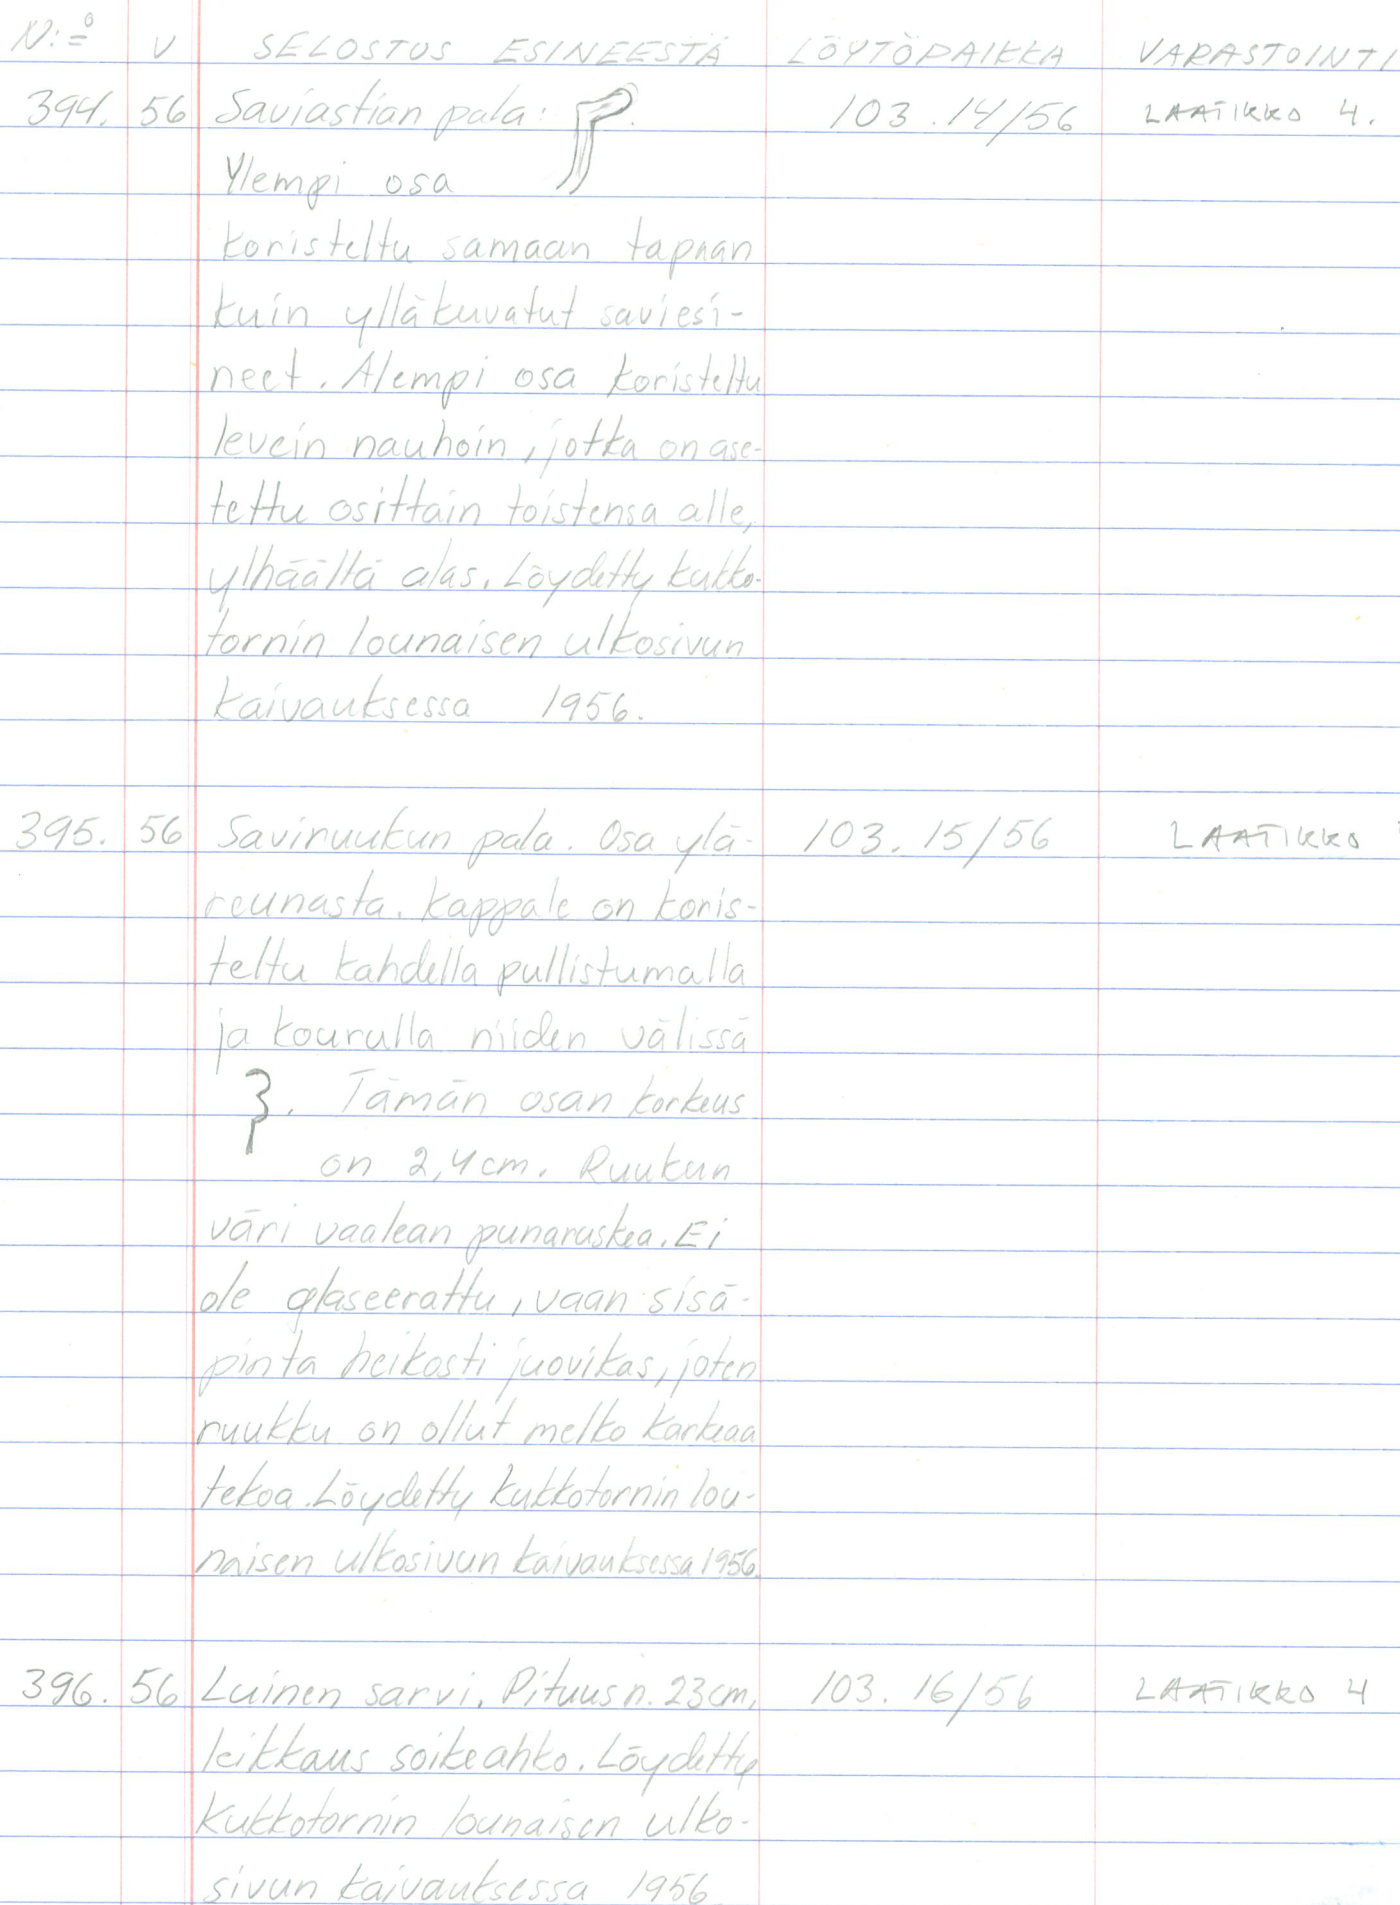 N:o V SELOSTUS ESINEESTÄ LÖYTÖPAIKKA VARASTOINTI
394. 56 Saviastian pala: 103.14/56 LAATIKKO 4.
Ylempi osa
koristeltu samaan tapaan
kuin ylläkuvatut saviesi-
neet. Alempi osa koristeltu
levein nauhoin, jotka on ase-
tettu osittain toistensa alle,
ylhäältä alas. Löydetty kukko-
tornin lounaisen ulkosivun
kaivauksessa 1956.
395. 56 Saviruukun pala. Osa ylä- 103.15/56 LAATIKKO
reunasta. Kappale on koris-
teltu kahdella pullistumalla
ja kourulla niiden välissä
. Tämän osan korkeus
on 2,4 cm. Ruukun
väri vaalean punaruskea. Ei
ole glaseerattu, vaan sisä-
pinta heikosti juovikas, joten
ruukku on ollut melko karkeaa
tekoa. Löydetty kukkotornin lou-
naisen ulkosivun kaivauksessa 1956.
396. 56 Luinen sarvi. Pituus n. 23 cm, 103.16/56 LAATIKKO 4
leikkaus soikeahko. Löydetty
Kukkotornin lounaisen ulko-
sivun kaivauksessa 1956